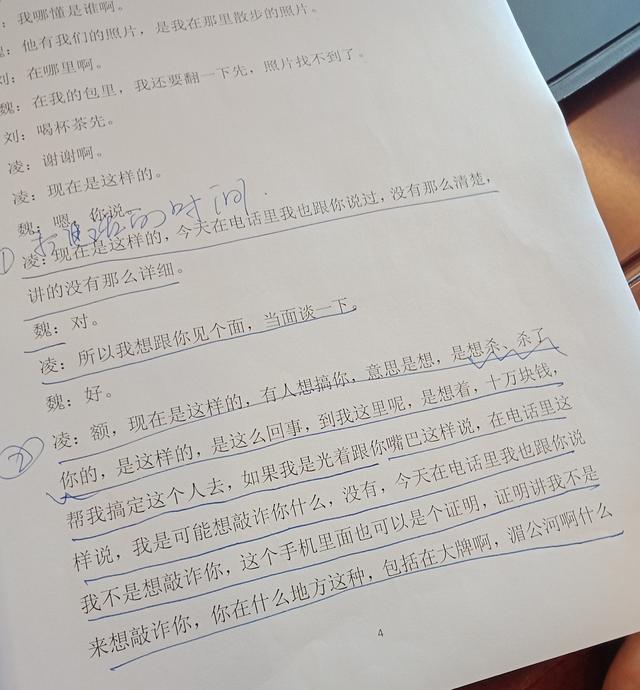 ：我哪懂是谁啊。
：他有我们的照片，是我在那里散步的照片。
刘：在哪里啊。
魏：在我的包里，我还要翻一下先，照片找不到了。
刘：喝杯茶先。
凌：谢谢啊。
凌：现在是这样的。
魏：嗯，你说
的时间
① 凌：现在是这样的，今天在电话里我也跟你说过，没有那么清楚，
讲的没有那么详细。
魏：对。
凌：所以我想跟你见个面，当面谈一下。
魏：好。
② 凌：额，现在是这样的，有人想搞你，意思是想，是想杀、杀了
你的，是这样的，是这么回事，到我这里呢，是想着，十万块钱，
帮我搞定这个人去，如果我是光着跟你嘴巴这样说，在电话里这
样说，我是可能想敲诈你什么，没有，今天在电话里我也跟你说
我不是想敲诈你，这个手机里面也可以是个证明，证明讲我不是
来想敲诈你，你在什么地方这种，包括在大牌啊，湄公河啊什么
4